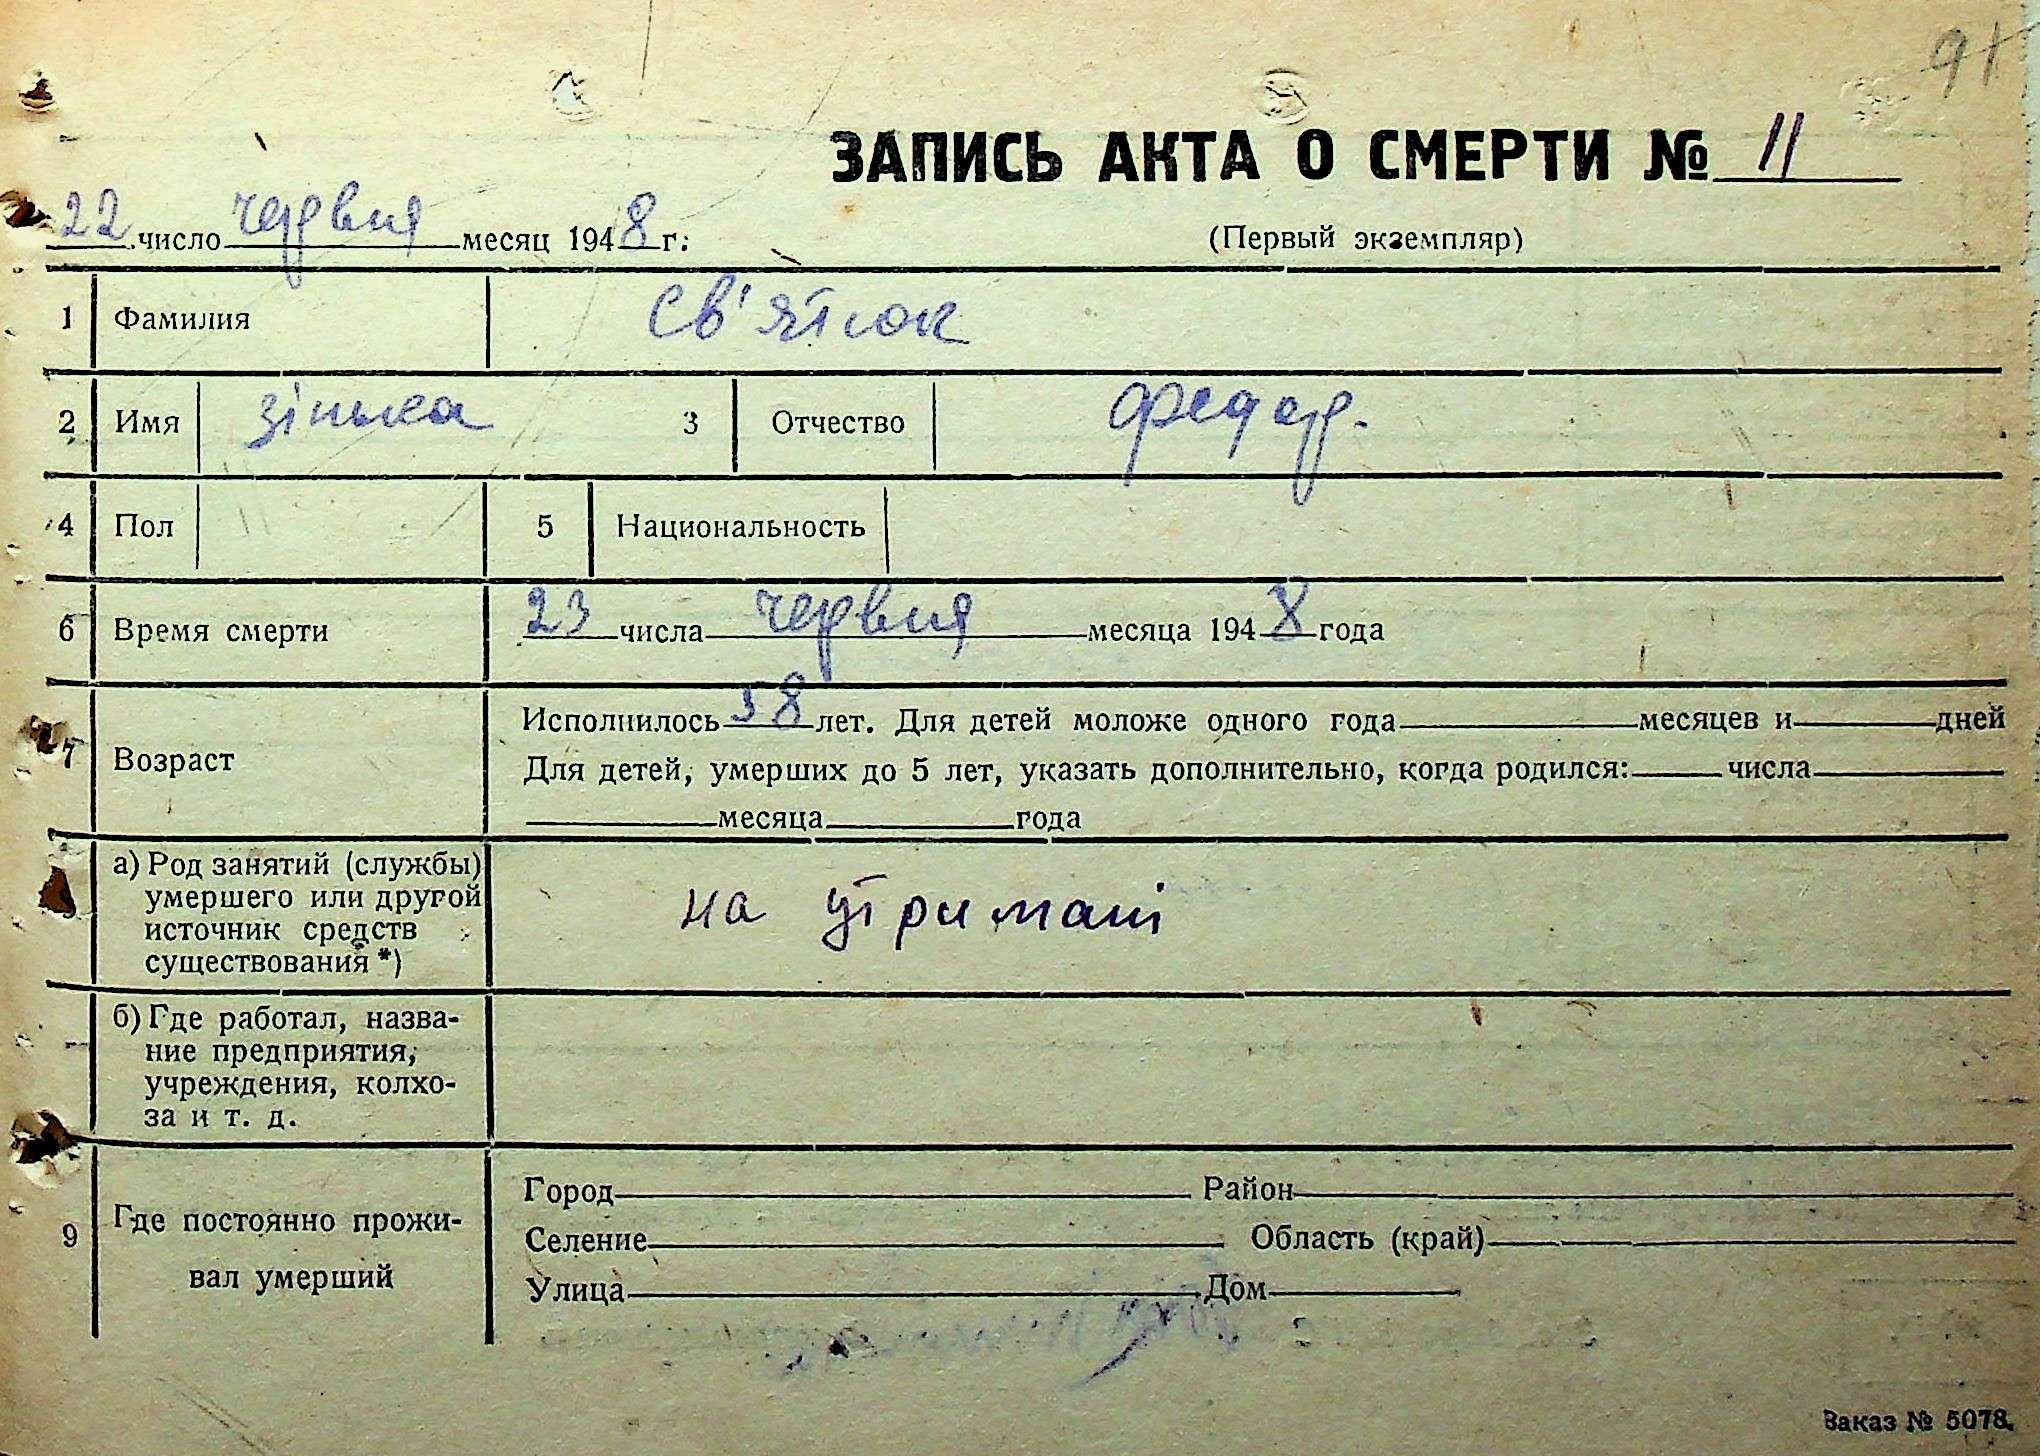 91
ЗАПИСЬ АКТА О СМЕРТИ № 11
22 число червня месяц 1948 г.
(Первый экземпляр)
1 Фамилия Св'ятюк
2 Имя Зінька 3 Отчество Федор.
4 Пол 5 Национальность
6 Время смерти 23 числа червня месяца 1948 года
7 Возраст
Исполнилось 58 лет. Для детей моложе одного года месяцев и дней
Для детей, умерших до 5 лет, указать дополнительно, когда родился: числа
месяца года
а) Род занятий (службы)
умершего или другой
источник средств
существования *)
на утримані
б) Где работал, назва-
ние предприятия,
учреждения, колхо-
за и т. д.
9 Где постоянно прожи-
вал умерший
Город Район
Селение Область (край)
Улица Дом
Заказ № 5078.